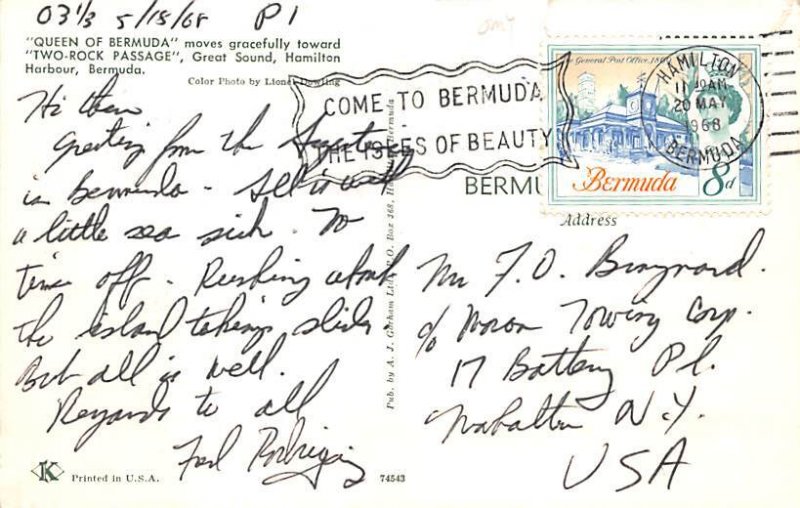 03 1/3 5/18/68 P1
"QUEEN OF BERMUDA" moves gracefully toward
"TWO-ROCK PASSAGE", Great Sound, Hamilton
Harbour, Bermuda.
Color Photo by Lionel Dowling
Hi there
Greeting from the
in Bermuda - All is well
a little sea sick. No
time off. Rushing about
the island taking slides
But all is well.
Regards to all
Rodriguez
K
Printed in U.S.A.
74543
Pub. by A. J. Gorham Ltd., P. O. Box 368, Bermuda
COME TO BERMUDA
THE ISLES OF BEAUTY
General Post Office
HAMILTON
11 AM
20 MAY
1968
BERMUDA
Bermuda 8d
BERMU
Address
Mr F. O. Braynard.
c/o Moran Towing Corp.
17 Battery Pl.
N.Y.
USA